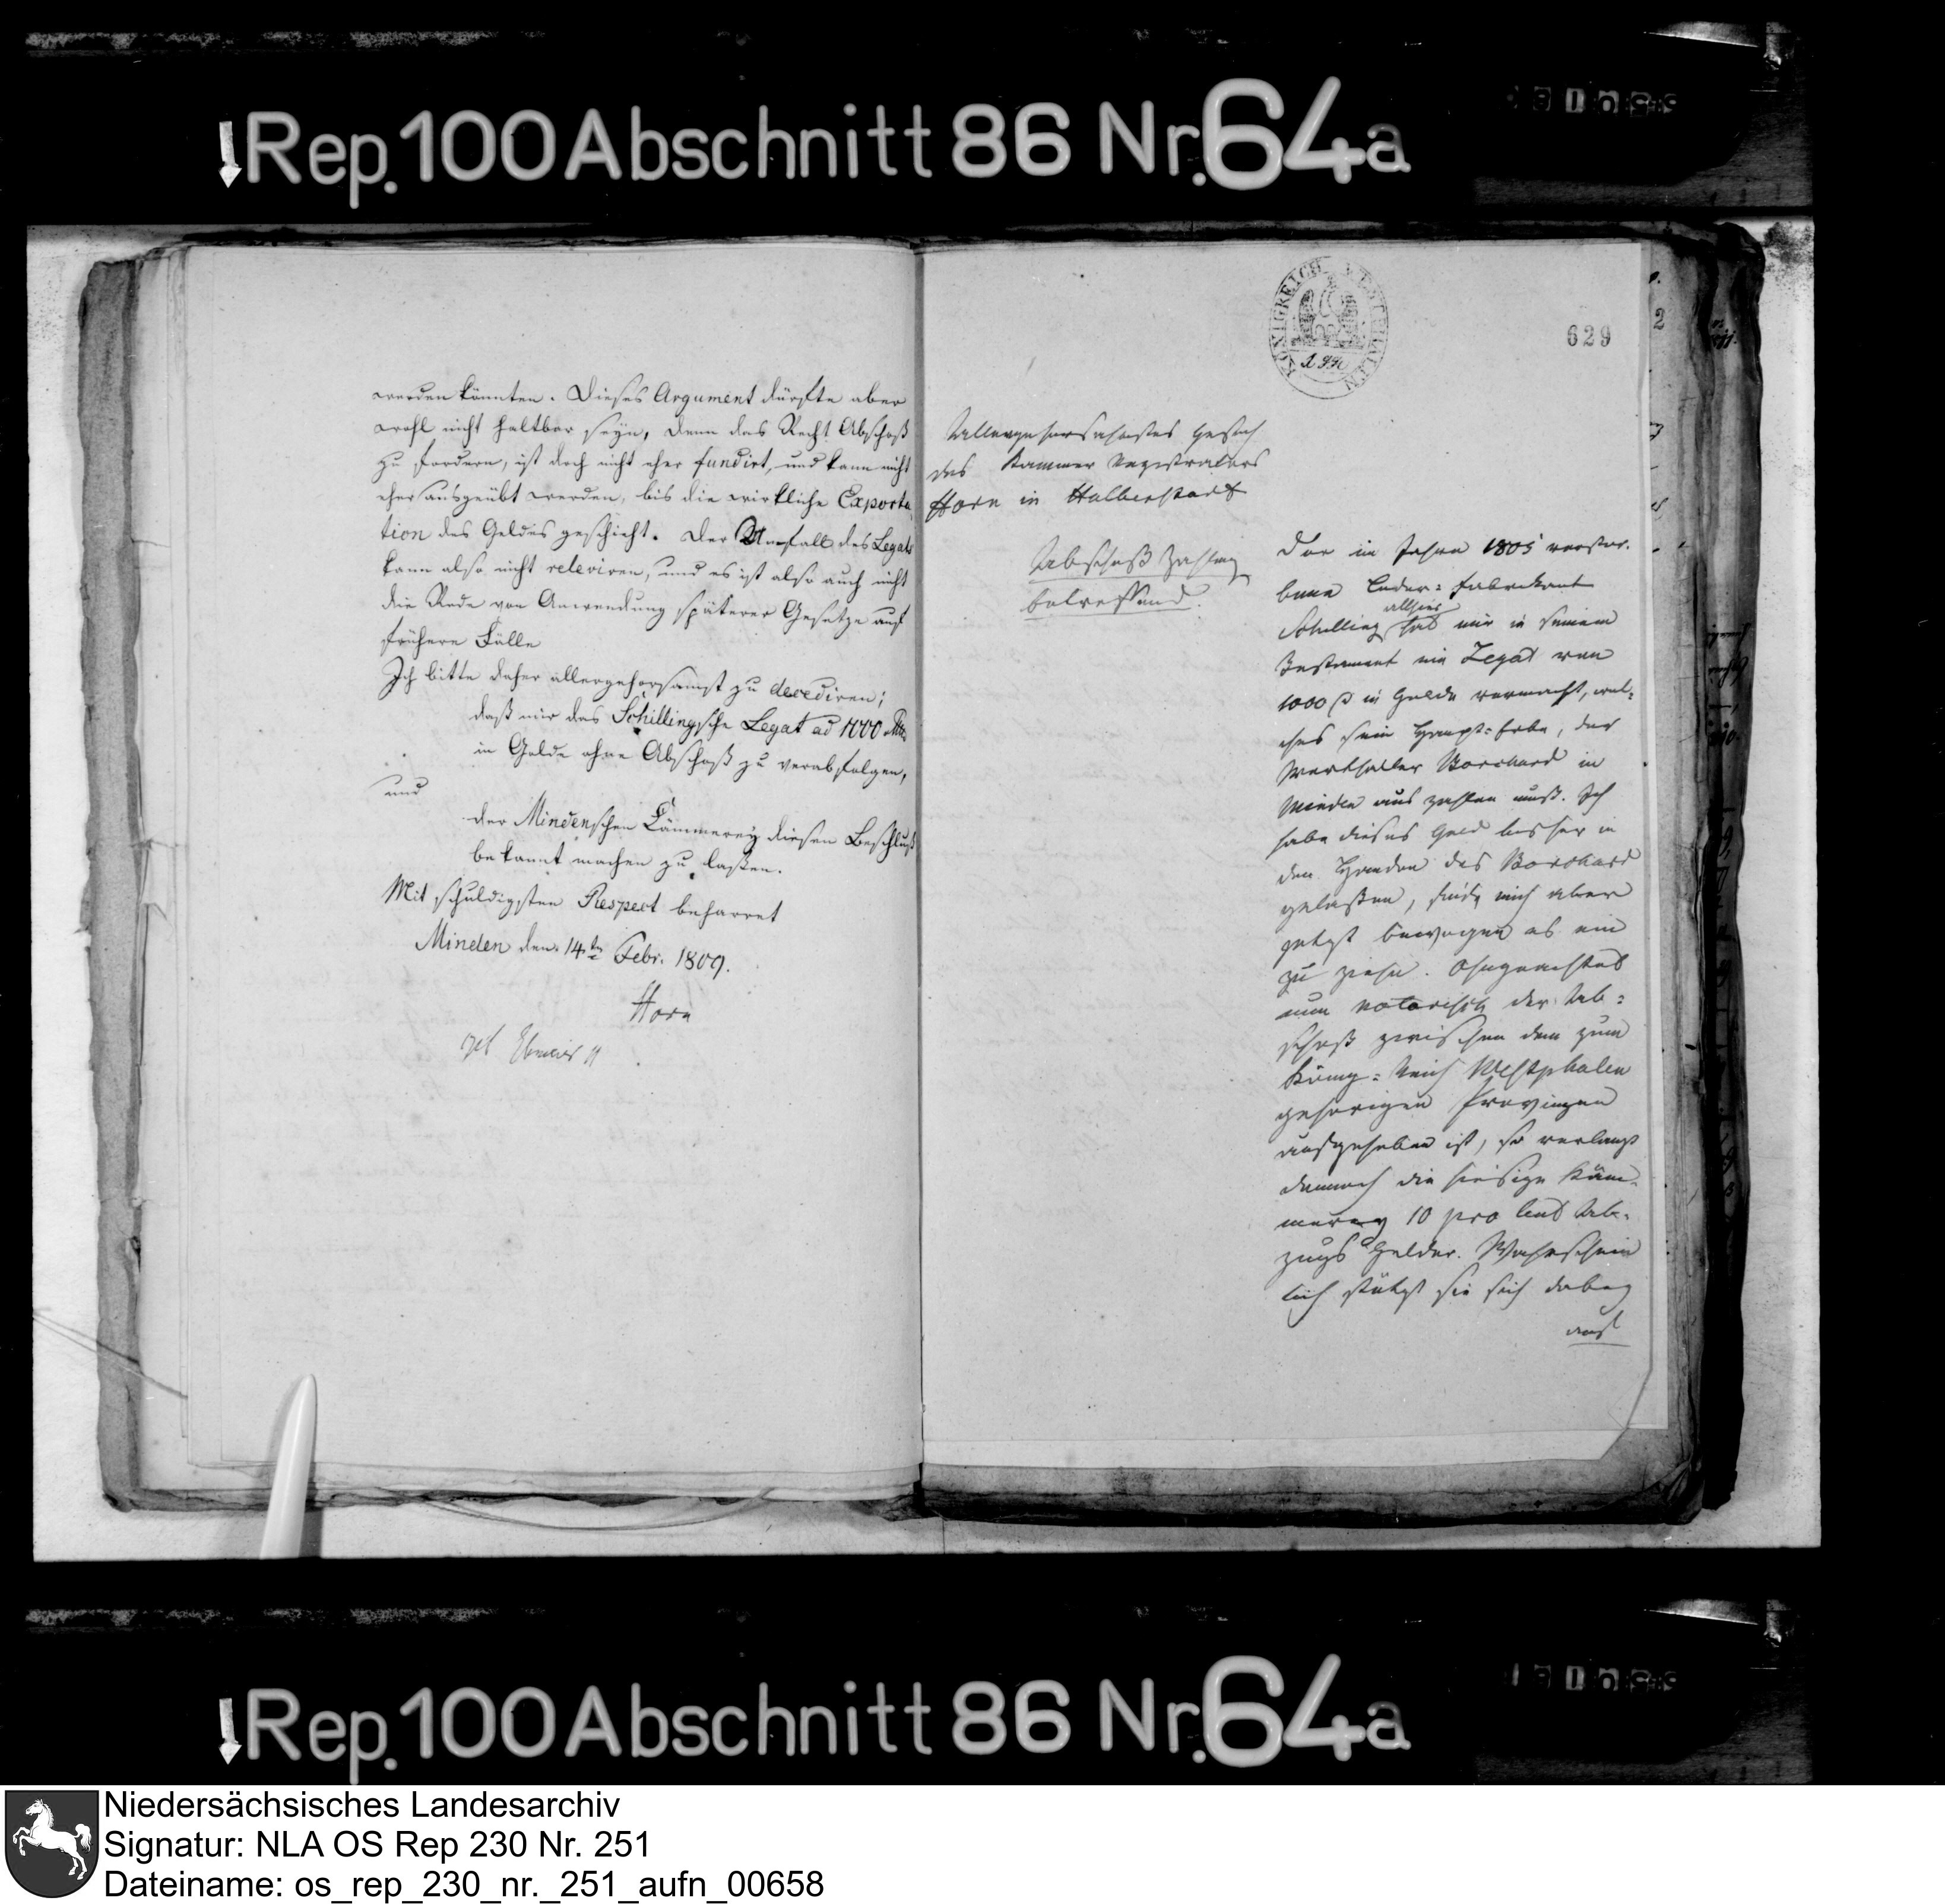 Rep. 100 Abschnitt 86 Nr. 64a
werden könnten. Dieses Argument dürfte aber
wohl nicht haltbar seyn, denn das Recht Abschoß
zu fordern, ist doch nicht eher fundirt, und kann nicht
eher ausgeübt werden, bis die wirkliche Exporta
tion des Geldes geschieht. Der Anfall des Legats
kann also nicht releviren, und es ist also auch nicht
die Rede von Anwendung späterer Gesetze auf
frühere Fälle
Ich bitte daher allergehorsamst zu decediren;
daß mir das Schillingsche Legat ad 1000 Rthlr
in Golde ohne Abschoß zu verabfolgen,
und
der Mindenschen Cämmerey diesen Beschluß
bekannt machen zu laßen.
Mit schuldigsten Respect beharret
Minden den 14ten Febr. 1809.
Horn
KÖNIGREICH WESTPHALEN
629
Allergehorsamstes Gesuch
des Kammer Registrators
Horn in Halberstadt
Abschoß Zahlung
betreffend.
Der im Jahre 1805 verstor-
bene Leder-Fabrikant
Schilling allhier hat mir in seinem
Testament ein Legat von
1000 in Golde vermacht, wel-
ches sein Haupt-Erbe, der
Borchard in
Minden aus zahlen muß. Ich
habe dieses Geld bisher in
den Händen des Borchard
gelaßen, finde mich aber
jetzt bewogen es ein
zu ziehn. Ohngeachtet
nun notorisch der Ab-
schoß zwischen den zum
König-Reich Westphalen
gehörigen Provinzen
aufgehoben ist, so verlangt
dennoch die hiesige Käm-
merey 10 pro Cent Ab-
zugs Gelder. Wahrschein
lich stützt sie sich dabey
auf
Rep. 100 Abschnitt 86 Nr. 64a
Niedersächsisches Landesarchiv
Signatur: NLA OS Rep 230 Nr. 251
Dateiname: os_rep_230_nr._251_aufn_00658